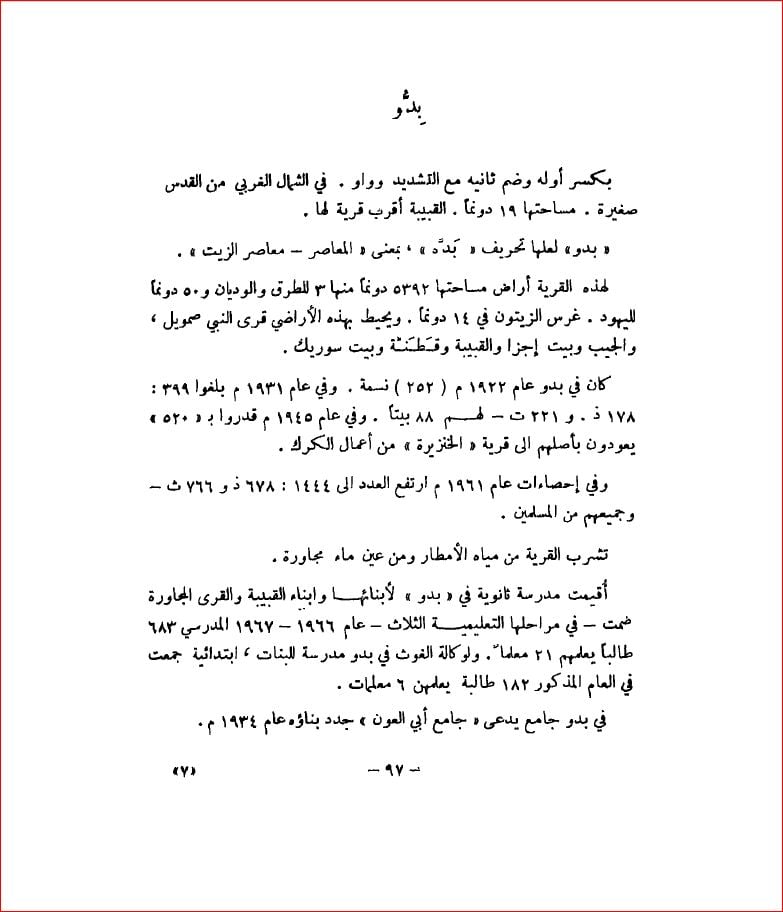 بِدُّو
بكسر أوله وضم ثانيه مع التشديد وواو . في الشمال الغربي من القدس
صغيرة . مساحتها ١٩ دونماً . القبيبة أقرب قرية لها .
« بدو» لعلها تحريف « بَدَّه » ، بمعنى « المعاصر – معاصر الزيت » .
لهذه القرية أراض مساحتها ٥٣٩٢ دونماً منها ٣ للطرق والوديان و ٥٠ دونماً
لليهود . غرس الزيتون في ١٤ دونماً . ويحيط بهذه الأراضي قرى النبي صمويل ،
والجيب وبيت إجزا والقبيبة وقَطَنَّة وبيت سوريك .
كان في بدو عام ١٩٢٢ م ( ٢٥٢ ) نسمة . وفي عام ١٩٣١ م بلغوا ٣٩٩ :
١٧٨ ذ . و ٢٢١ ت – لهم ٨٨ بيتاً . وفي عام ١٩٤٥ م قدروا بـ « ٥٢٠ »
يعودون بأصلهم الى قرية « الخنزيرة » من أعمال الكرك .
وفي إحصاءات عام ١٩٦١ م ارتفع العدد الى ١٤٤٤ : ٦٧٨ ذ و ٧٦٦ ث –
وجميعهم من المسلمين .
تشرب القرية من مياه الأمطار ومن عين ماء مجاورة .
أُقيمت مدرسة ثانوية في « بدو » لأبنائها وابناء القبيبة والقرى المجاورة
ضمت – في مراحلها التعليمية الثلاث – عام ١٩٦٦ – ١٩٦٧ المدرسي ٦٨٣
طالباً يعلمهم ٢١ معلماً . ولوكالة الغوث في بدو مدرسة للبنات ، ابتدائية جمعت
في العام المذكور ١٨٢ طالبة يعلمهن ٦ معلمات .
في بدو جامع يدعى « جامع أبي العون » جدد بناؤه عام ١٩٣٤ م .
– ٩٧ –
«٧»